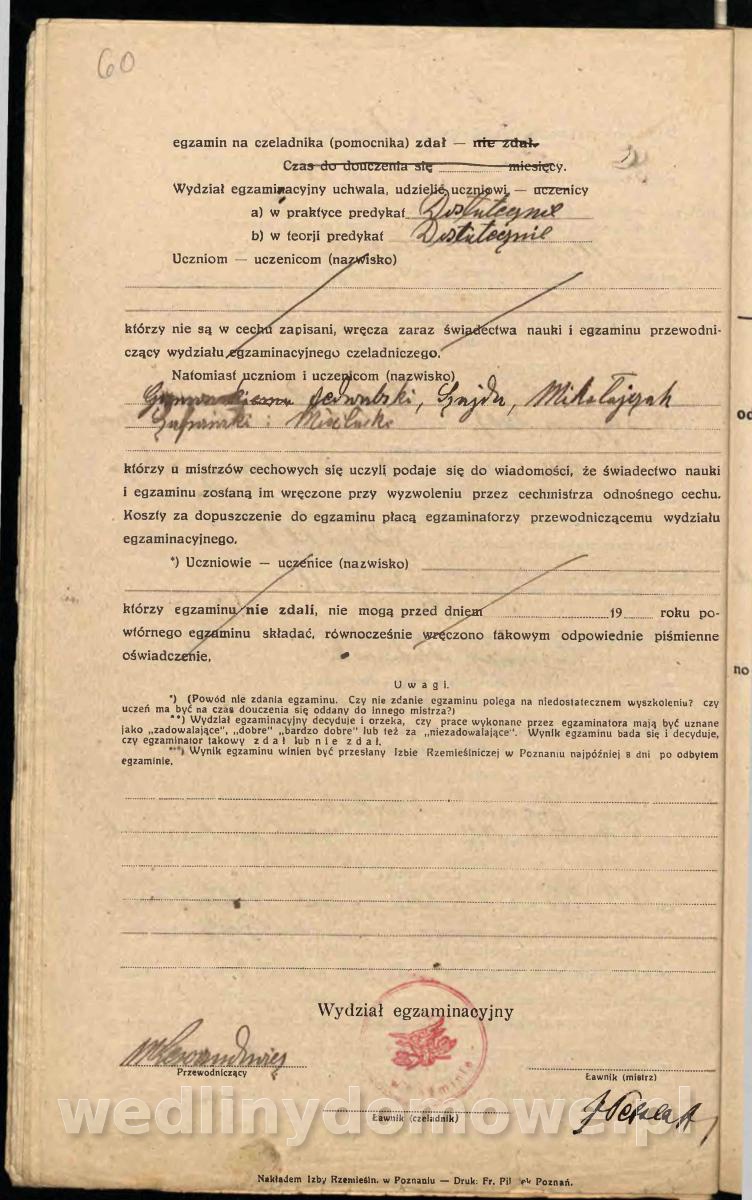 60
egzamin na czeladnika (pomocnika) zdał — nie zdał.
Czas do douczenia się miesięcy.
Wydział egzaminacyjny uchwala, udzielić uczniowi — uczenicy
a) w praktyce predykat Dostatecznie
b) w teorji predykat Dostatecznie
Uczniom — uczenicom (nazwisko)
którzy nie są w cechu zapisani, wręcza zaraz świadectwa nauki i egzaminu przewodni-
czący wydziału egzaminacyjnego czeladniczego.
Natomiast uczniom i uczenicom (nazwisko)
Szajda, Mikołajczak
i
którzy u mistrzów cechowych się uczyli podaje się do wiadomości, że świadectwo nauki
i egzaminu zostaną im wręczone przy wyzwoleniu przez cechmistrza odnośnego cechu.
Koszty za dopuszczenie do egzaminu płacą egzaminatorzy przewodniczącemu wydziału
egzaminacyjnego.
*) Uczniowie — uczenice (nazwisko)
którzy egzaminu nie zdali, nie mogą przed dniem 19 roku po-
wtórnego egzaminu składać, równocześnie wręczono takowym odpowiednie piśmienne
oświadczenie.
Uwagi.
*) (Powód nie zdania egzaminu. Czy nie zdanie egzaminu polega na niedostatecznem wyszkoleniu? czy
uczeń ma być na czas douczenia się oddany do innego mistrza?)
**) Wydział egzaminacyjny decyduje i orzeka, czy prace wykonane przez egzaminatora mają być uznane
jako „zadowalające", „dobre" „bardzo dobre" lub też za „niezadowalające". Wynik egzaminu bada się i decyduje,
czy egzaminator takowy zdał lub nie zdał.
***) Wynik egzaminu winien być przesłany Izbie Rzemieślniczej w Poznaniu najpóźniej 8 dni po odbytem
egzaminie.
Wydział egzaminacyjny
Przewodniczący
Ławnik (mistrz)
Ławnik (czeladnik)
wedlinydomowe.pl
Nakładem Izby Rzemieśln. w Poznaniu — Druk: Fr. Poznań.
od
no